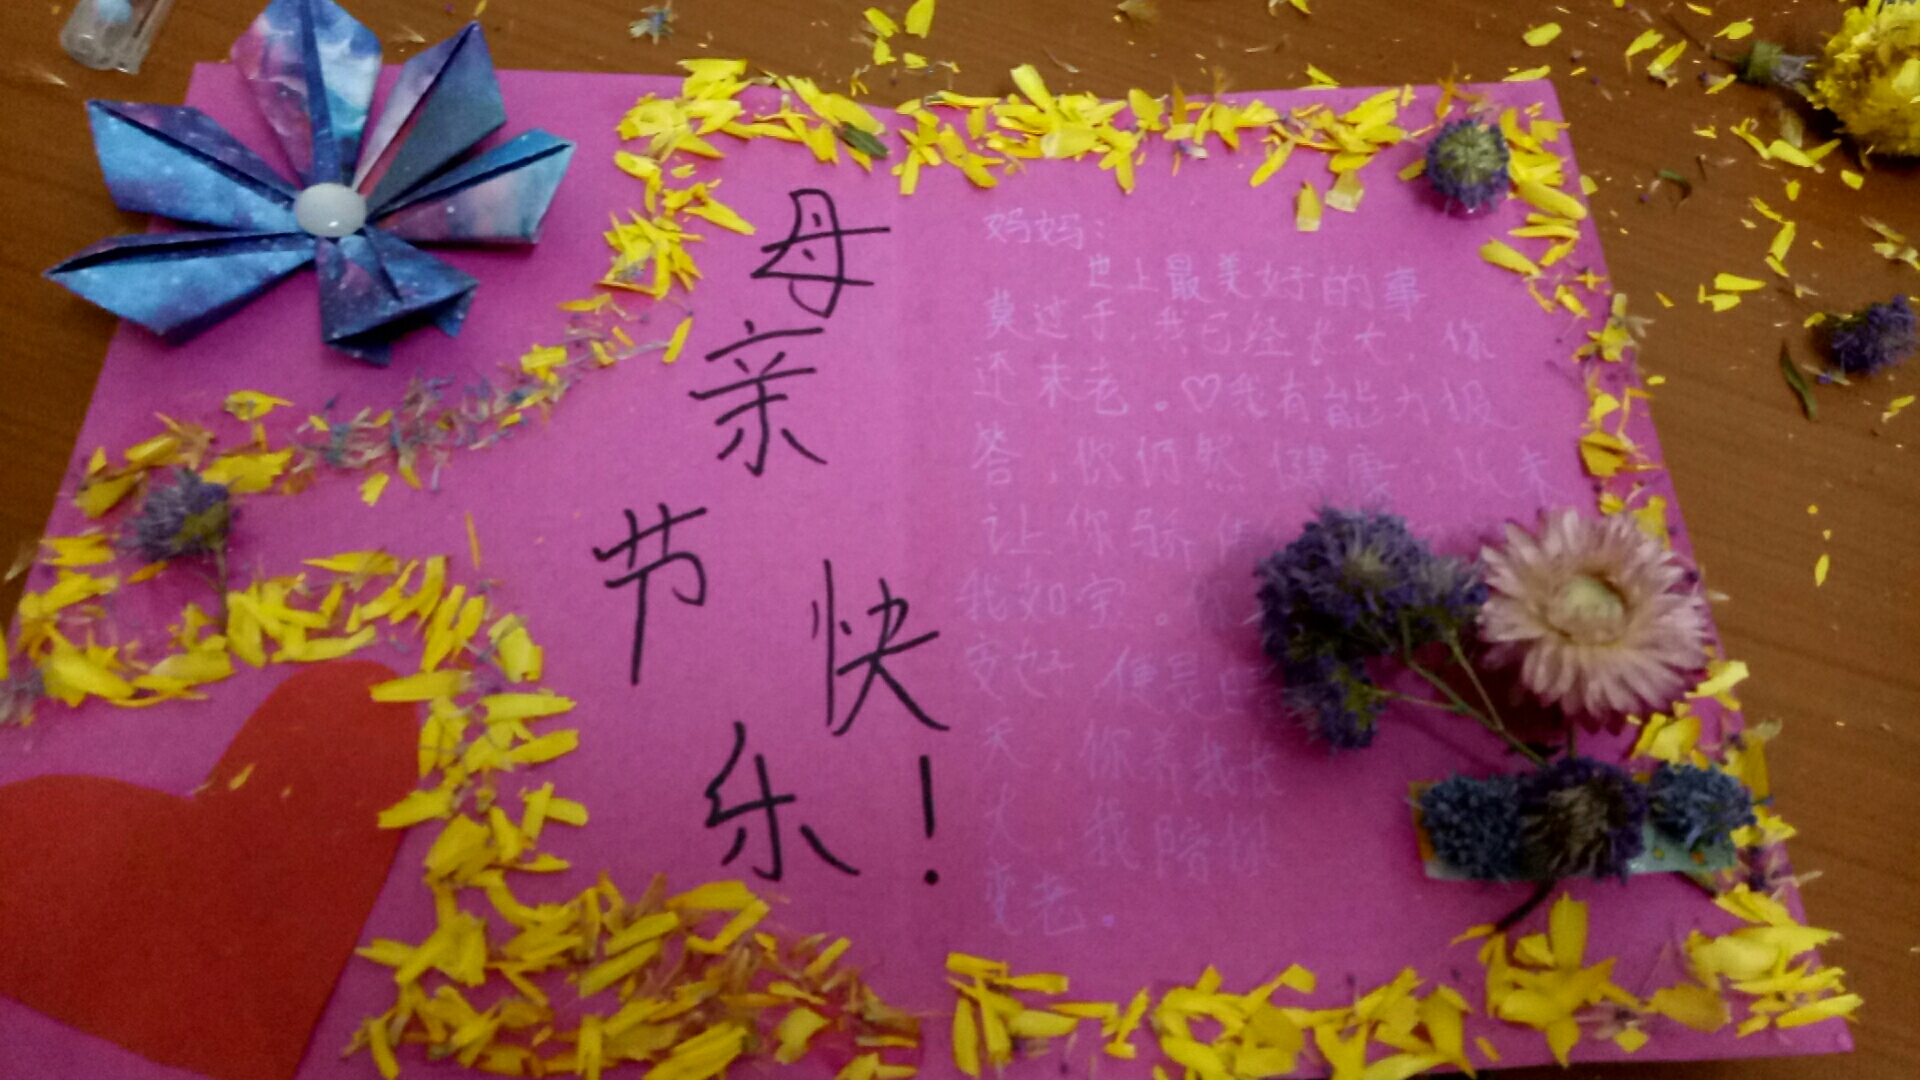 母
亲
节
快
乐！
妈妈：
世上最美好的事
莫过于，我已经长大，你
还未老。♡我有能力报
答，你仍然健康，从未
让你骄傲
我如宝。你
安好，便是
天，你养我长
大，我陪你
变老。